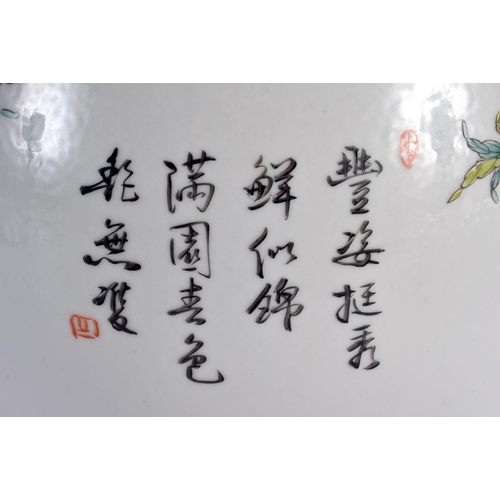 豐姿挺秀
鮮似錦
滿園春色
艷無雙